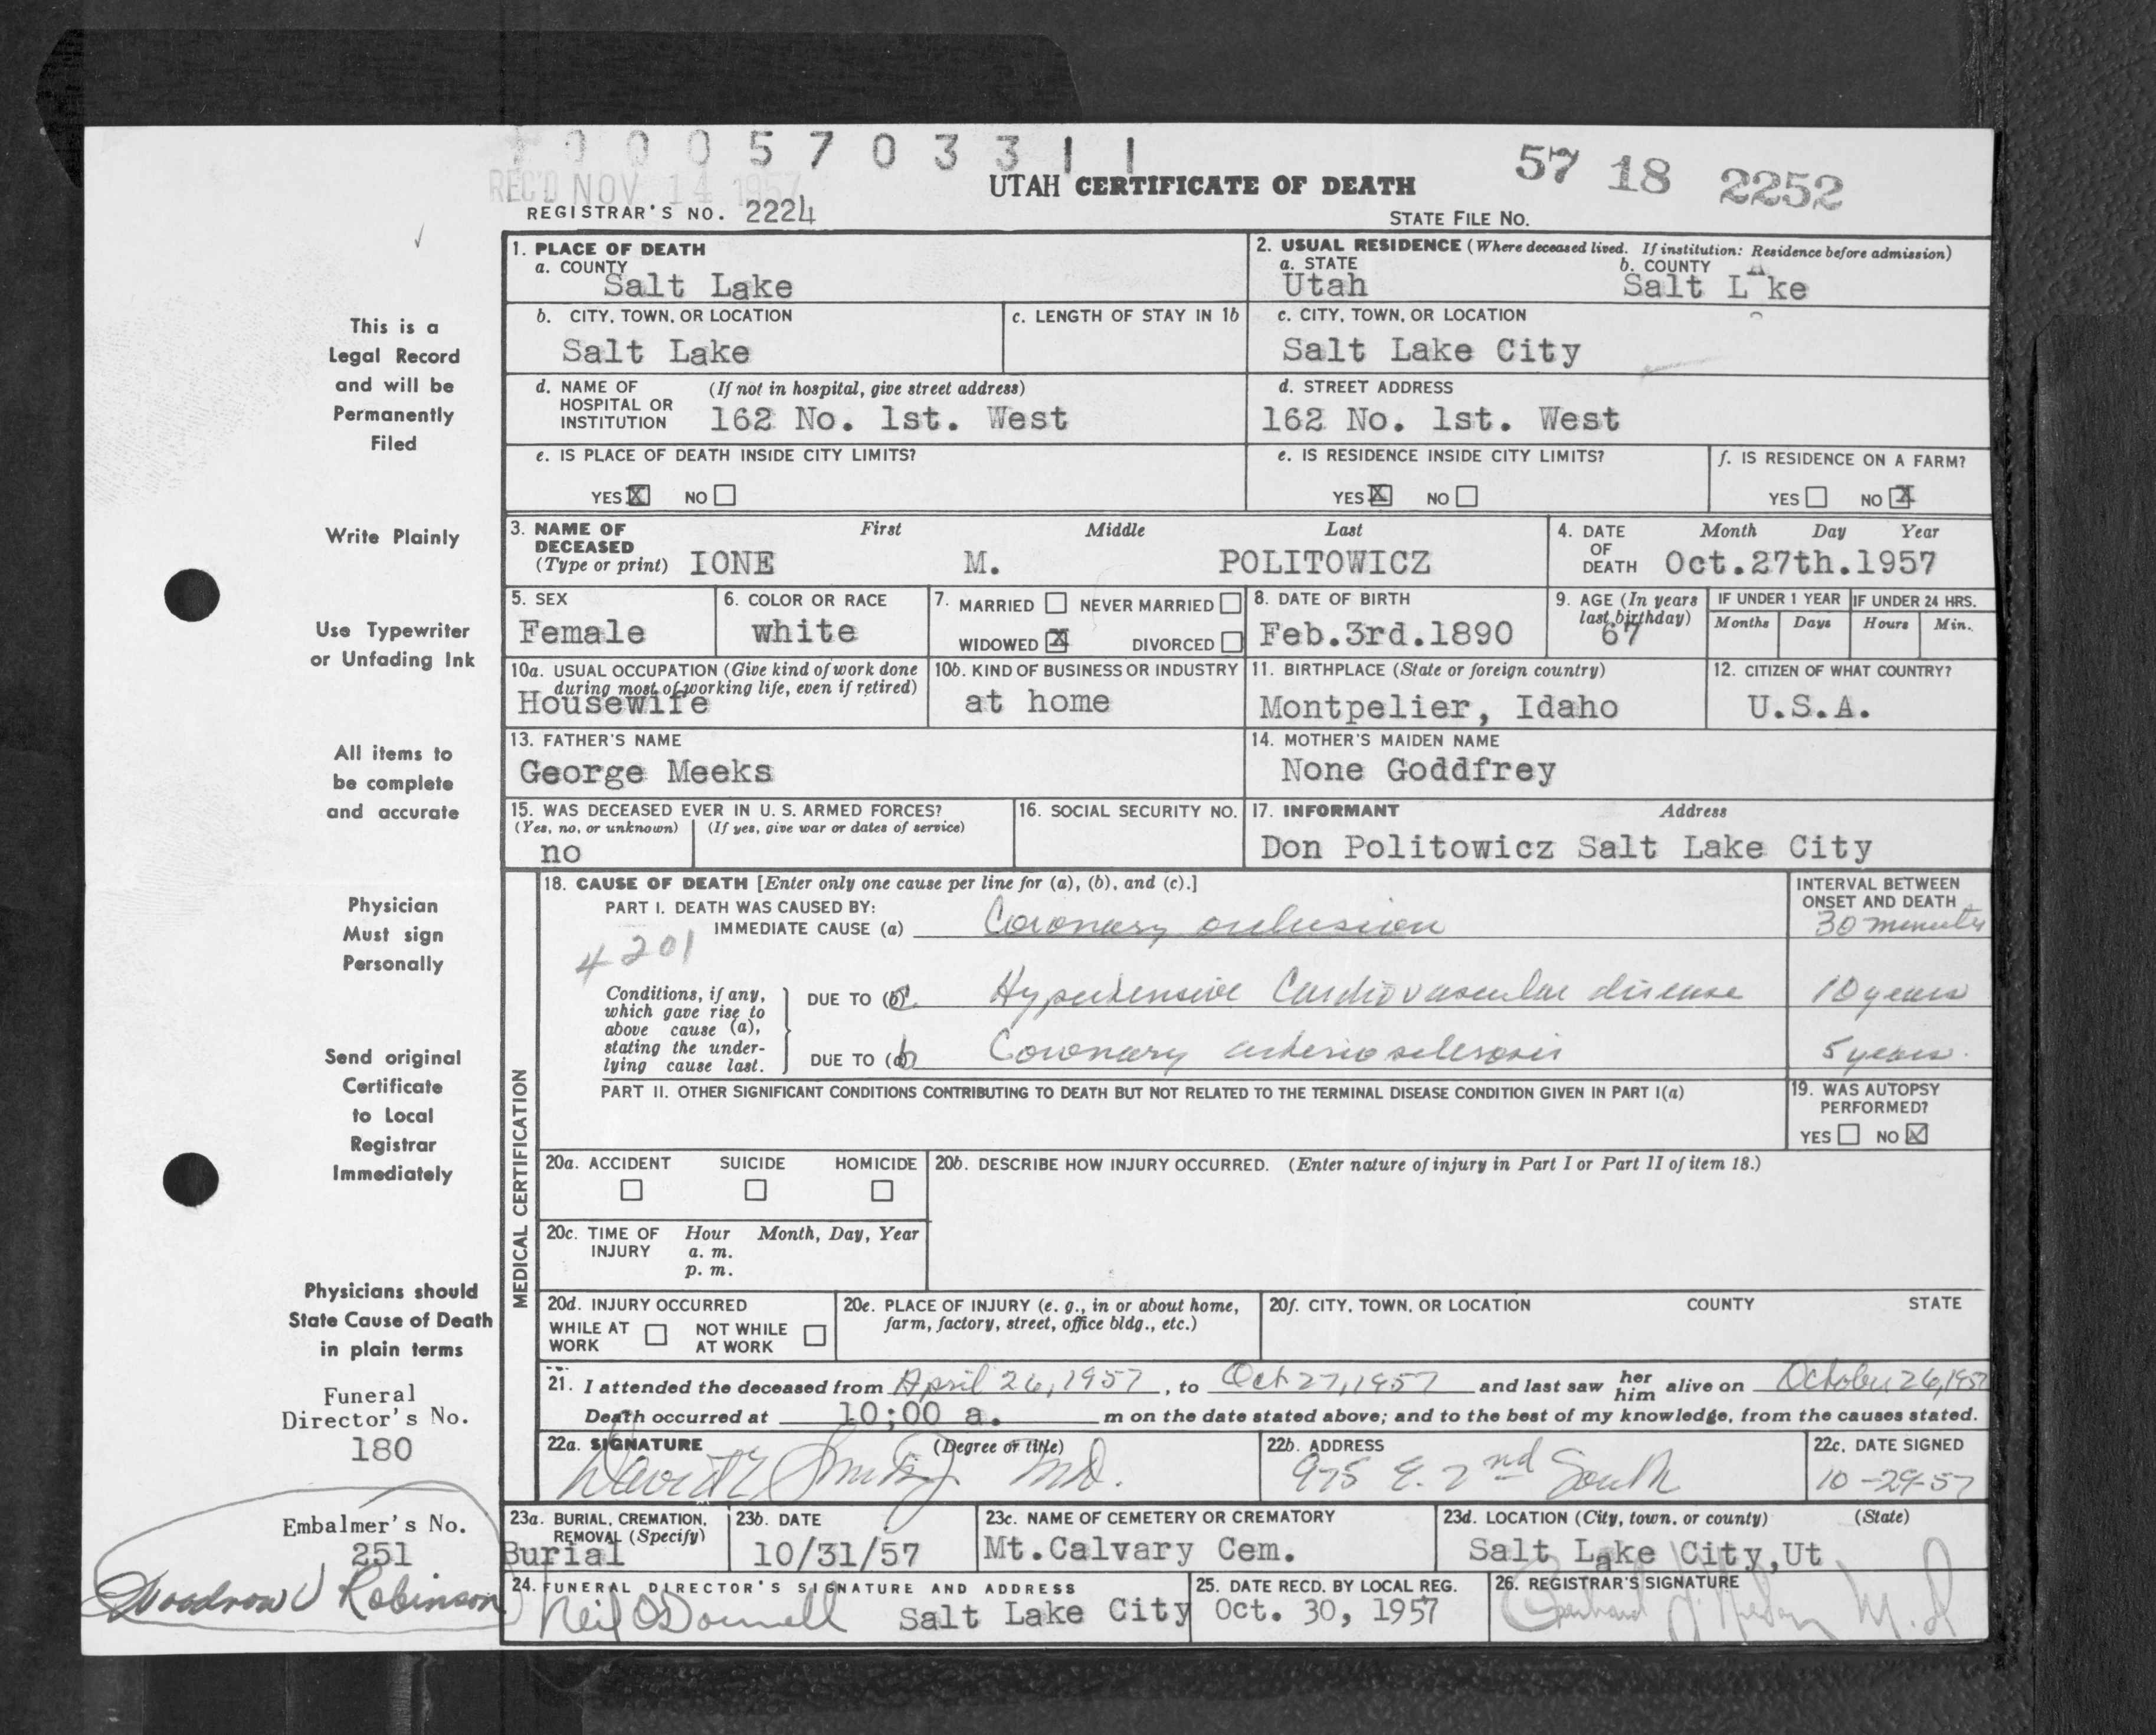 0 0 0 5 7 0 3 3 1 1
REC'D NOV 14 1957
57 18 2252
UTAH CERTIFICATE OF DEATH
REGISTRAR'S NO. 2224
STATE FILE NO.
1. PLACE OF DEATH
a. COUNTY
Salt Lake
2. USUAL RESIDENCE (Where deceased lived. If institution: Residence before admission)
a. STATE b. COUNTY
Utah Salt Lake
b. CITY, TOWN, OR LOCATION
Salt Lake
c. LENGTH OF STAY IN 1b
c. CITY, TOWN, OR LOCATION
Salt Lake City
d. NAME OF HOSPITAL OR INSTITUTION (If not in hospital, give street address)
162 No. 1st. West
d. STREET ADDRESS
162 No. 1st. West
e. IS PLACE OF DEATH INSIDE CITY LIMITS?
YES X NO
e. IS RESIDENCE INSIDE CITY LIMITS?
YES X NO
f. IS RESIDENCE ON A FARM?
YES NO X
3. NAME OF DECEASED (Type or print) First Middle Last
IONE M. POLITOWICZ
4. DATE OF DEATH Month Day Year
Oct.27th.1957
5. SEX
Female
6. COLOR OR RACE
white
7. MARRIED NEVER MARRIED
WIDOWED X DIVORCED
8. DATE OF BIRTH
Feb.3rd.1890
9. AGE (In years last birthday)
67
IF UNDER 1 YEAR IF UNDER 24 HRS.
Months Days Hours Min.
10a. USUAL OCCUPATION (Give kind of work done during most of working life, even if retired)
Housewife
10b. KIND OF BUSINESS OR INDUSTRY
at home
11. BIRTHPLACE (State or foreign country)
Montpelier, Idaho
12. CITIZEN OF WHAT COUNTRY?
U.S.A.
13. FATHER'S NAME
George Meeks
14. MOTHER'S MAIDEN NAME
None Goddfrey
15. WAS DECEASED EVER IN U. S. ARMED FORCES?
(Yes, no, or unknown) (If yes, give war or dates of service)
no
16. SOCIAL SECURITY NO.
17. INFORMANT Address
Don Politowicz Salt Lake City
MEDICAL CERTIFICATION
18. CAUSE OF DEATH [Enter only one cause per line for (a), (b), and (c).]
INTERVAL BETWEEN ONSET AND DEATH
PART I. DEATH WAS CAUSED BY:
IMMEDIATE CAUSE (a) Coronary occlusion 30 minutes
4201
Conditions, if any, which gave rise to above cause (a), stating the underlying cause last.
DUE TO (b) c. Hypertensive Cardiovascular disease 10 years
DUE TO (c) b Coronary arteriosclerosis 5 years.
PART II. OTHER SIGNIFICANT CONDITIONS CONTRIBUTING TO DEATH BUT NOT RELATED TO THE TERMINAL DISEASE CONDITION GIVEN IN PART I(a)
19. WAS AUTOPSY PERFORMED?
YES NO X
20a. ACCIDENT SUICIDE HOMICIDE
20b. DESCRIBE HOW INJURY OCCURRED. (Enter nature of injury in Part I or Part II of item 18.)
20c. TIME OF INJURY Hour Month, Day, Year
a. m.
p. m.
20d. INJURY OCCURRED
WHILE AT WORK NOT WHILE AT WORK
20e. PLACE OF INJURY (e. g., in or about home, farm, factory, street, office bldg., etc.)
20f. CITY, TOWN, OR LOCATION COUNTY STATE
21. I attended the deceased from April 26, 1957, to Oct 27, 1957 and last saw her him alive on October 26, 1957
Death occurred at 10;00 a. m on the date stated above; and to the best of my knowledge, from the causes stated.
22a. SIGNATURE (Degree or title)
David E Smith MD.
22b. ADDRESS
975 E. 2nd South
22c. DATE SIGNED
10-29-57
23a. BURIAL, CREMATION, REMOVAL (Specify)
Burial
23b. DATE
10/31/57
23c. NAME OF CEMETERY OR CREMATORY
Mt.Calvary Cem.
23d. LOCATION (City, town, or county) (State)
Salt Lake City,Ut
24. FUNERAL DIRECTOR'S SIGNATURE AND ADDRESS
Neil O'Donnell Salt Lake City
25. DATE RECD. BY LOCAL REG.
Oct. 30, 1957
26. REGISTRAR'S SIGNATURE
M.D
This is a
Legal Record
and will be
Permanently
Filed
Write Plainly
Use Typewriter
or Unfading Ink
All items to
be complete
and accurate
Physician
Must sign
Personally
Send original
Certificate
to Local
Registrar
Immediately
Physicians should
State Cause of Death
in plain terms
Funeral
Director's No.
180
Embalmer's No.
251
Woodrow J Robinson